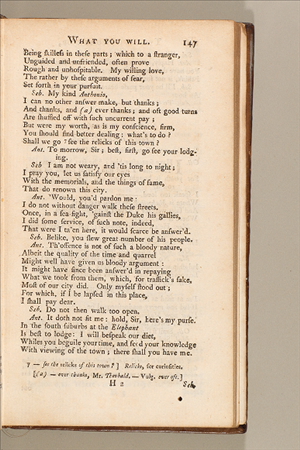 WHAT YOU WILL. 147
Being skilless in these parts; which to a stranger,
Unguided and unfriended, often prove
Rough and unhospitable. My willing love,
The rather by these arguments of fear,
Set forth in your pursuit.
Seb. My kind Anthonio,
I can no other answer make, but thanks;
And thanks, and (a) ever thanks; and oft good turns
Are shuffled off with such uncurrent pay;
But were my worth, as is my conscience, firm,
You should find better dealing: what's to do?
Shall we go 7 see the relicks of this town?
Ant. To morrow, Sir; best, first, go see your lodg-
ing.
Seb I am not weary, and 'tis long to night;
I pray you, let us satisfy our eyes
With the memorials, and the things of fame,
That do renown this city.
Ant. 'Would, you'd pardon me:
I do not without danger walk these streets.
Once, in a sea-fight, 'gainst the Duke his gallies,
I did some service, of such note, indeed,
That were I ta'en here, it would scarce be answer'd.
Seb. Belike, you slew great number of his people.
Ant. Th'offence is not of such a bloody nature,
Albeit the quality of the time and quarrel
Might well have given us bloody argument:
It might have since been answer'd in repaying
What we took from them, which, for traffick's sake,
Most of our city did. Only myself stood out;
For which, if I be lapsed in this place,
I shall pay dear.
Seb. Do not then walk too open.
Ant. It doth not fit me: hold, Sir, here's my purse.
In the south suburbs at the Elephant
Is best to lodge: I will bespeak our diet,
Whiles you beguile your time, and feed your knowledge
With viewing of the town; there shall you have me.
7 — see the relicks of this town?] Relicks, for curiosities.
[(a) — ever thanks, Mr. Theobald. — Vulg. ever oft.]
H 2 Seb.